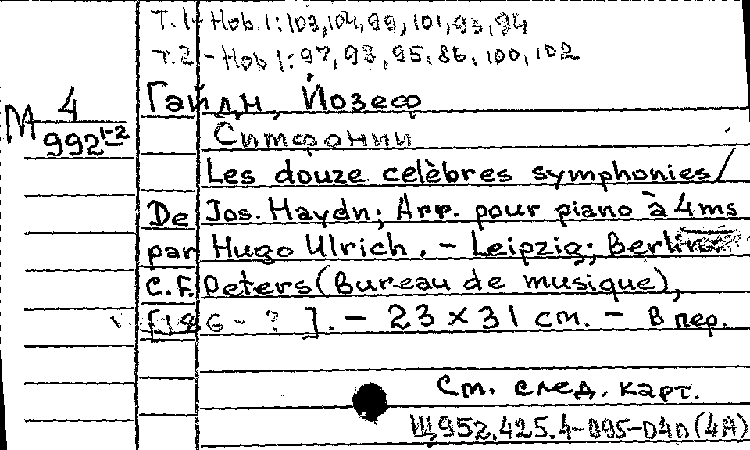 Т. 1 - Hob. I: 103, 104, 99, 101, 93, 94
Т. 2 - Hob I: 97, 98, 95, 86, 100, 102
М 4
992 1-2
Гайдн, Йозеф
Симфонии
Les douze celèbres symphonies /
De Jos. Haydn; Arr. pour piano à 4 ms
par Hugo Ulrich. - Leipzig; Berlin
C. F. Peters (Bureau de musique),
[186-?]. - 23 x 31 cm. - В пер.
См. след. карт.
Щ952.425.4-095-040(4А)